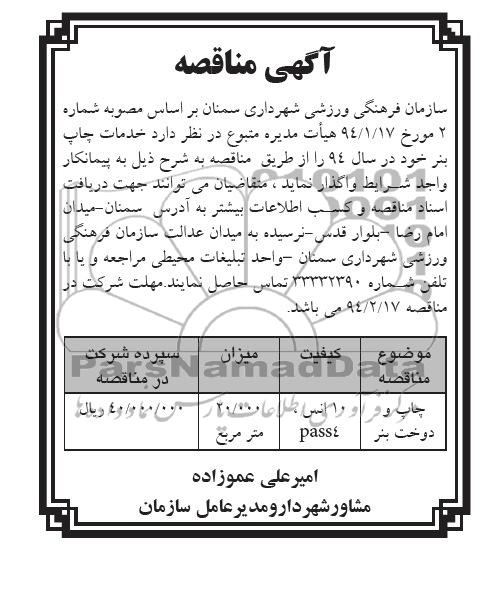 آگهی مناقصه
سازمان فرهنگی ورزشی شهرداری سمنان بر اساس مصوبه شماره
۲ مورخ ۹٤/۱/۱۷ هیأت مدیره متبوع در نظر دارد خدمات چاپ
بنر خود در سال ۹٤ را از طریق مناقصه به شرح ذیل به پیمانکار
واجد شرایط واگذار نماید ، متقاضیان می توانند جهت دریافت
اسناد مناقصه و کسب اطلاعات بیشتر به آدرس سمنان-میدان
امام رضا -بلوار قدس-نرسیده به میدان عدالت سازمان فرهنگی
ورزشی شهرداری سمنان -واحد تبلیغات محیطی مراجعه و یا با
تلفن شماره ۳۳۳۳۲۳۹۰ تماس حاصل نمایند.مهلت شرکت در
مناقصه ۹٤/۲/۱۷ می باشد.
موضوع مناقصه کیفیت میزان سپرده شرکت در مناقصه
چاپ و دوخت بنر ۱۰ انس ، pass٤ ۲۰/۰۰۰ متر مربع ٤۰/۰۰۰/۰۰۰ ریال
ParsNamadData
امیرعلی عموزاده
مشاورشهردارومدیرعامل سازمان